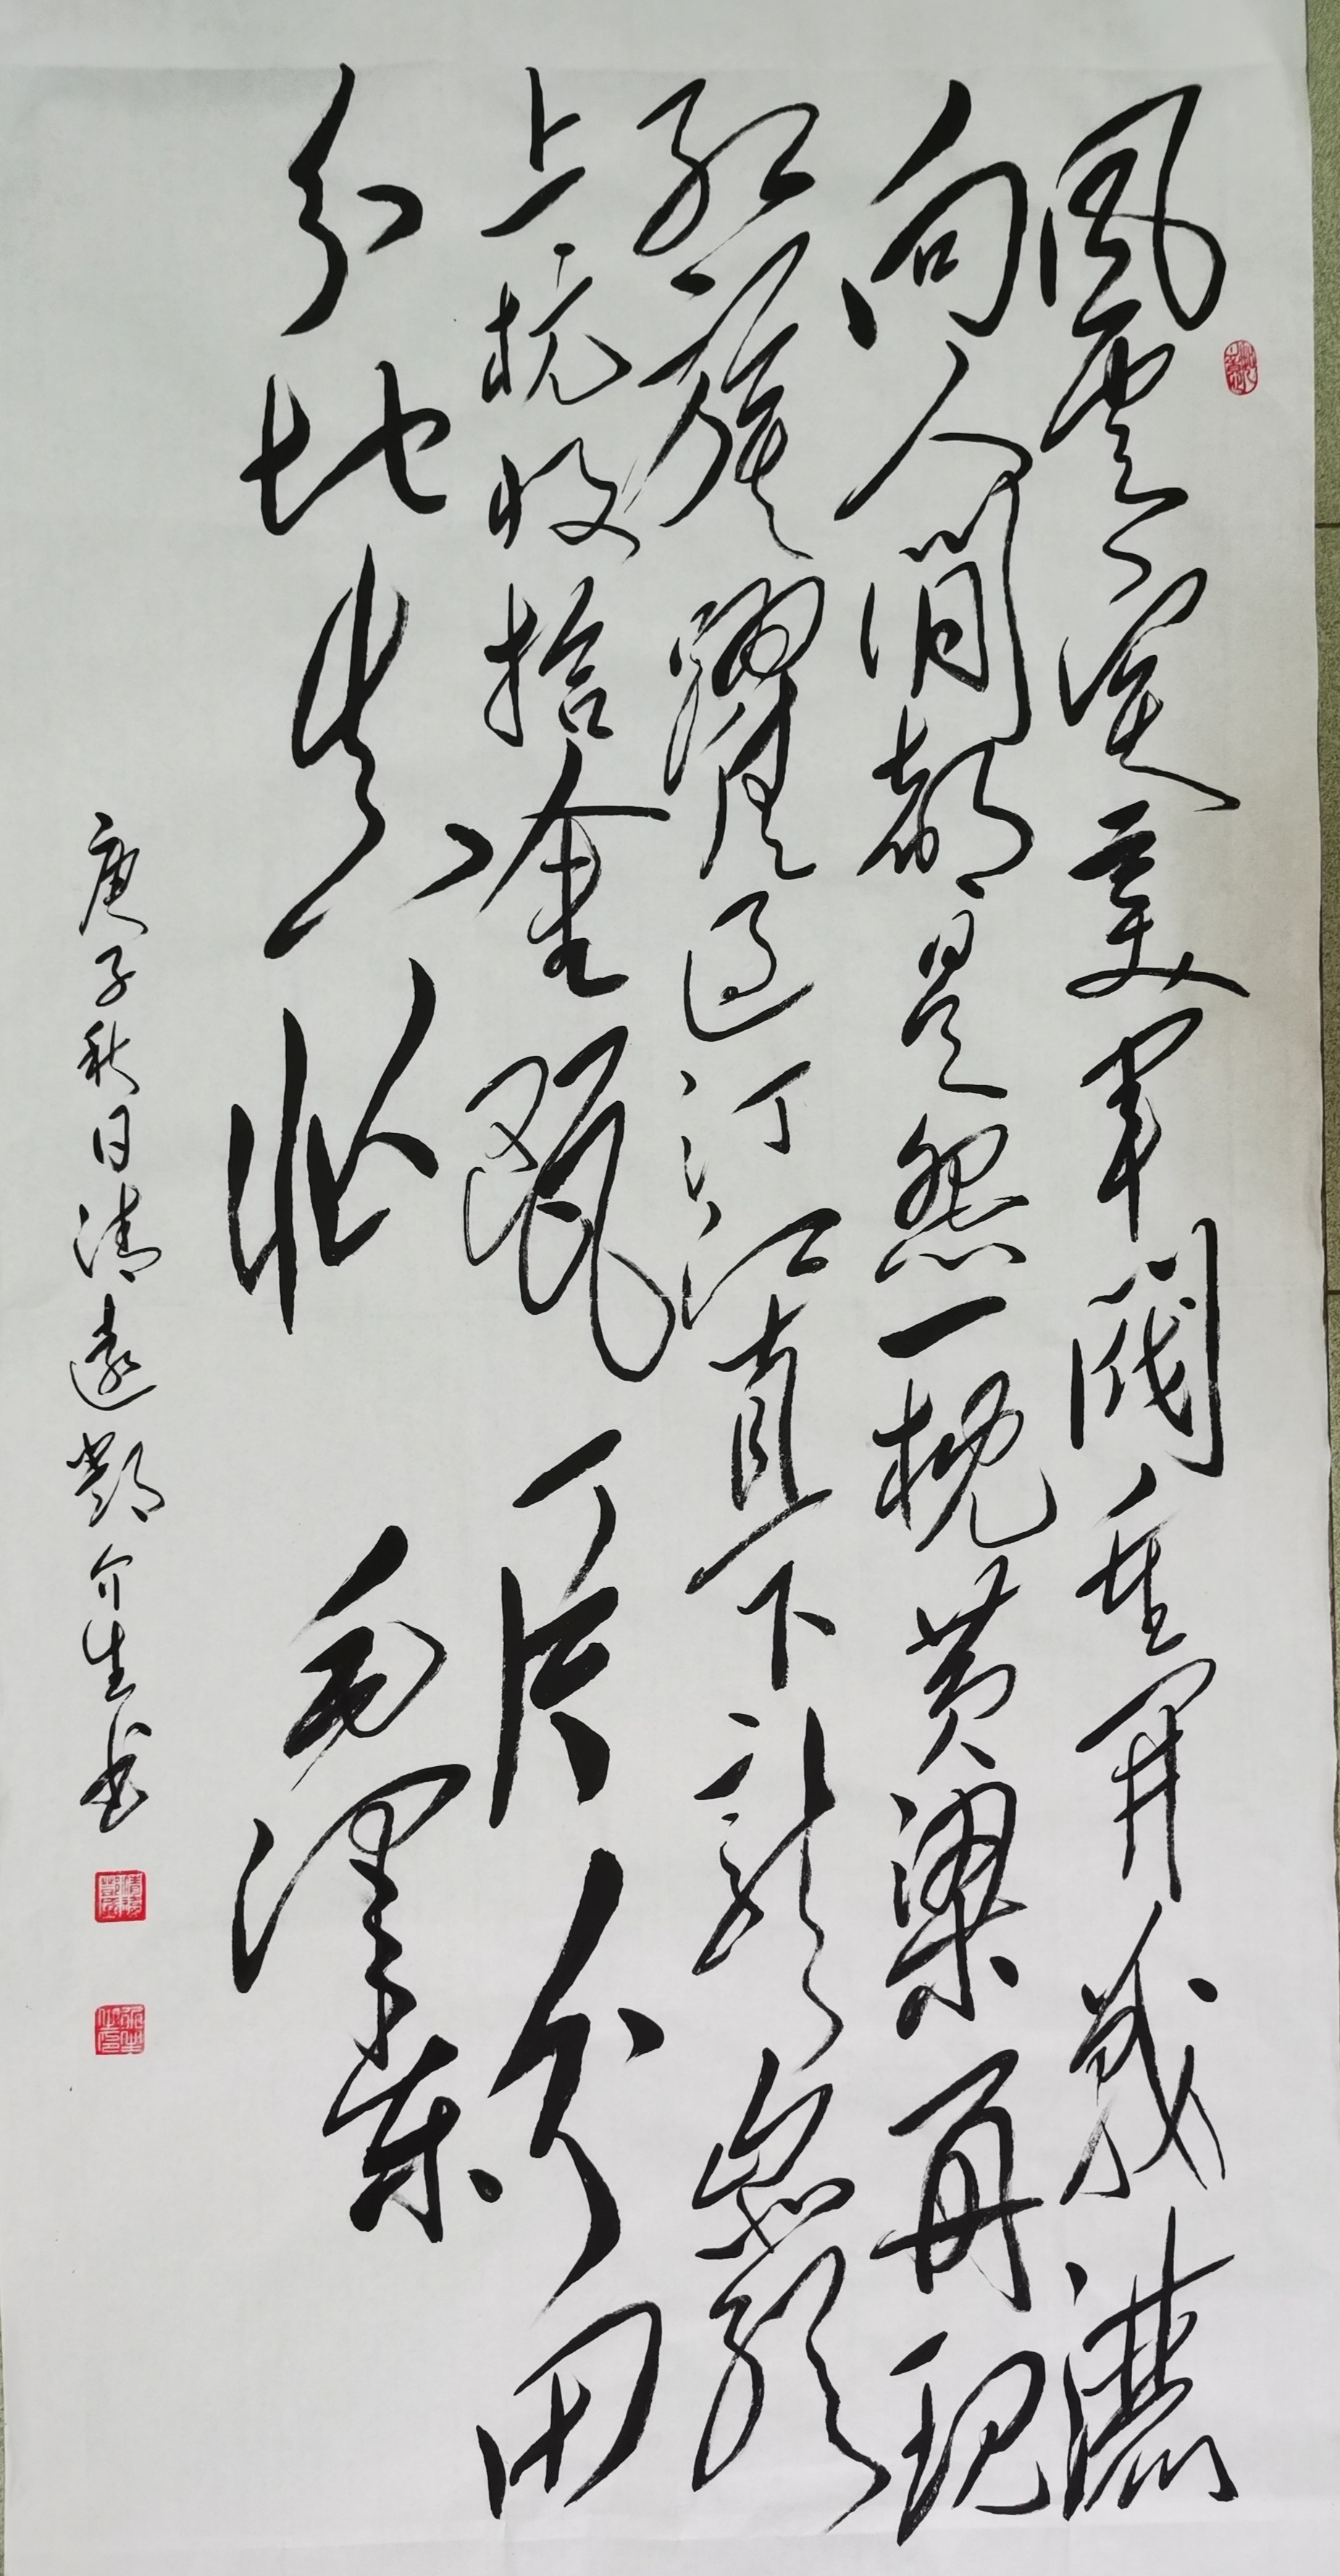 風雲突变軍閥重开戰灑
向人间都是怨一枕黄粱再现
红旗躍过汀江直下龍岩
上杭收拾金甌一片分田
分地真忙
毛澤東
庚子秋日清遠鄧介生书